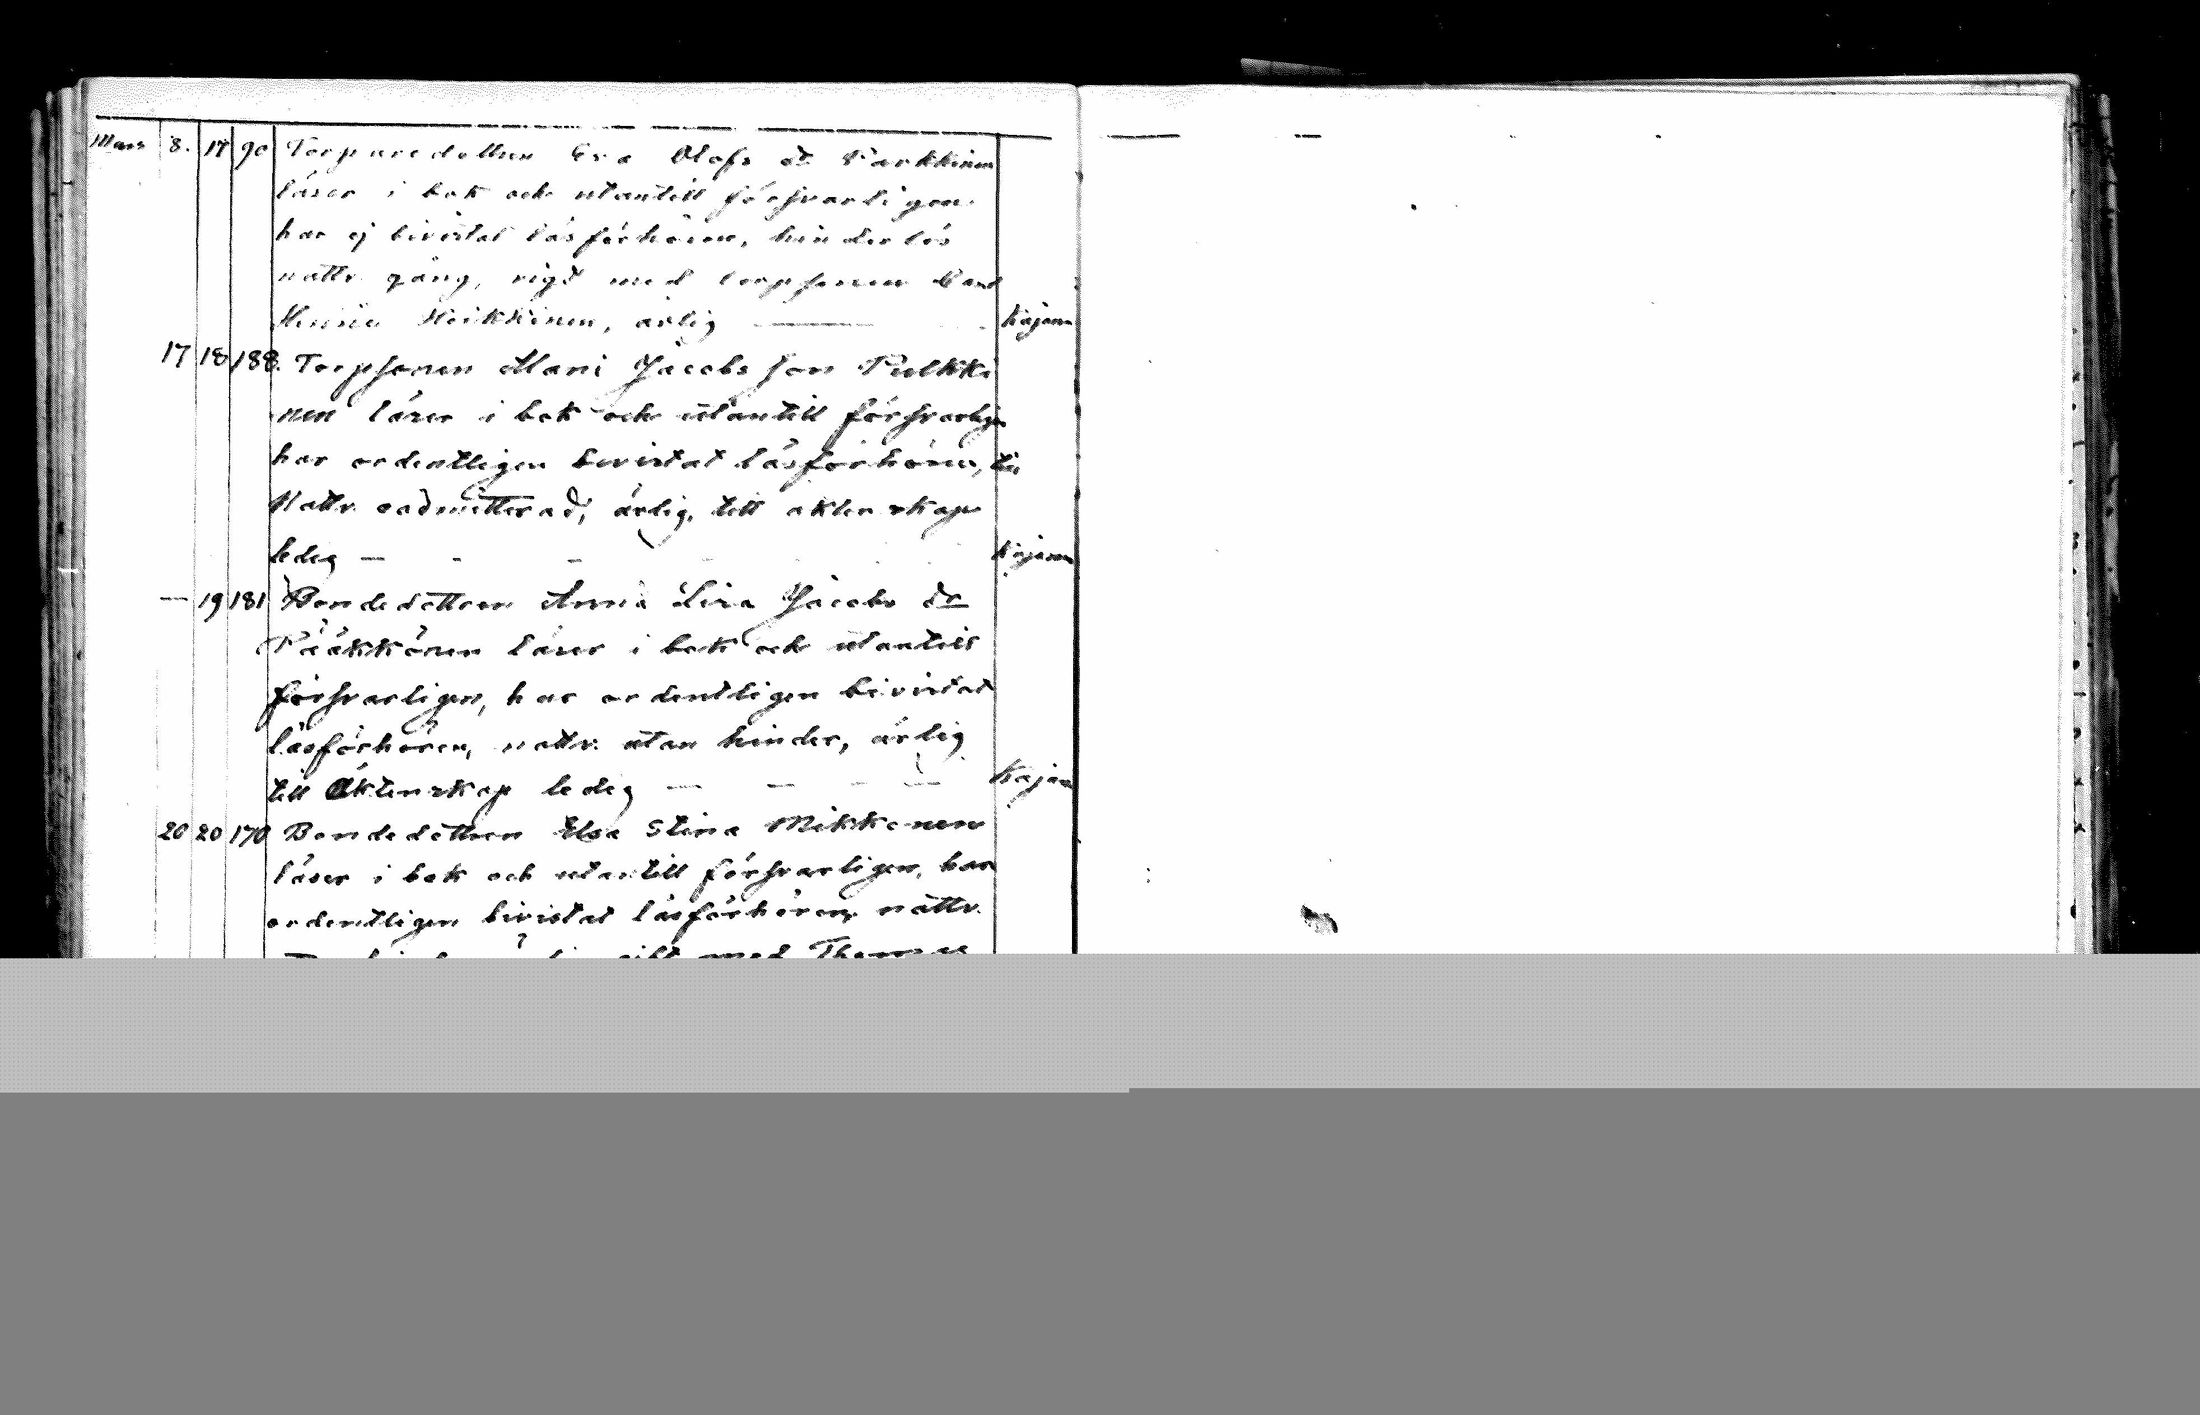 Mars 8. 17 90 Torparedottren Eva Olofs dr Parkkinen
läser i bok och utantill försvarligen
har ej bivistat läsförhören, hinderlös
nattv. gång, vigd med torpsonen
Heikkinen, ärlig — Kajana
17 18 188. Torpsonen Mani Jacobs son Pulkki
nen läser i bok och utantill försvarligen
har ordentligen bevistat läsförhören, till
Nattv. admitterad, ärlig, till äktenskap
ledig — - - Kajana
— 19 181 Bondedottren Anna Lisa Jacobs dr
Pääkkönen läser i bok och utantill
försvarligen, har ordentligen bivistat
läsförhören, nattv. utan hinder, ärlig
till Äktenskap ledig — — - — Kajana
20 20 170 Bondedottren Elsa Stina Mikkonen
läser i bok och utantill försvarligen, har
ordentligen bivistat läsförhören, nattv.
gift med Thomas